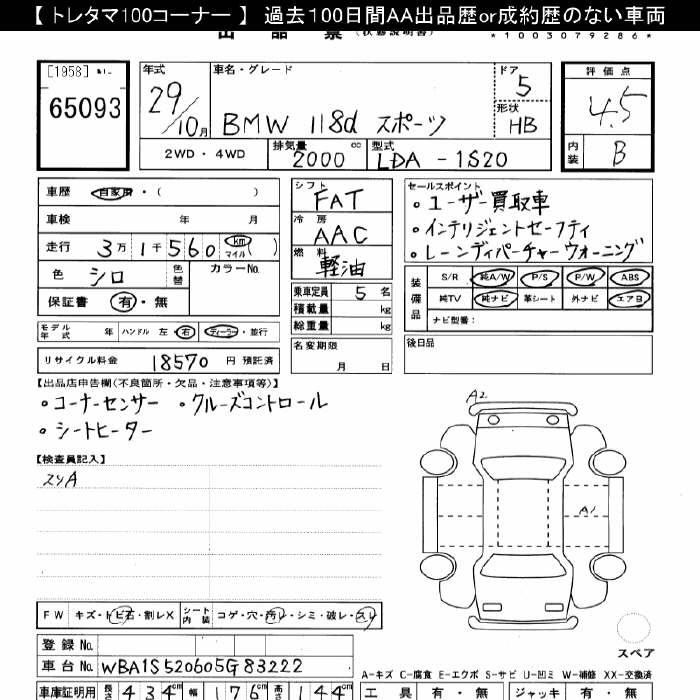 【 トレタマ100コーナー 】 過去100日間AA出品歴or成約歴のない車両
出 品 票 (状態説明書) *1003079286*
[1958]
65093
年式 29/10月
車名・グレード BMW 118d スポーツ
ドア 5
形状 HB
評価点 4.5
内装 B
2WD・4WD
排気量 2000 cc
型式 LDA-1S20
車歴 自家用・( )
車検 年 月
走行 3万1千560 km マイル )
色 シロ 色替 カラーNo.
保証書 有・無
モデル年式 年 ハンドル 左・右 ディーラー・並行
リサイクル料金 18570 円 預託済
シフト FAT
冷房 AAC
燃料 軽油
乗車定員 5 名
積載量 kg
総重量 kg
名変期限
月 日
セールスポイント
・ユーザー買取車
・インテリジェントセーフティ
・レーンディパーチャーウォーニング
装備品
S/R 純A/W P/S P/W ABS
純TV 純ナビ 革シート 外ナビ エアB
ナビ型番:
後日品
【出品店申告欄(不良箇所・欠品・注意事項等)】
・コーナーセンサー ・クルーズコントロール
・シートヒーター
【検査員記入】
スリA
A2
A1
スペア
FW キズ・トビ石・割レX シート内装 コゲ・穴・汚レ・シミ・破レ・スレ
登録 No.
車台 No. WBA1S520605G83222
A-キズ C-腐食 E-エクボ S-サビ U-凹ミ W-補修 XX-交換済
車庫証明用 長さ 434cm 幅 176cm 高さ 144cm
工具 有・無 ジャッキ 有・無